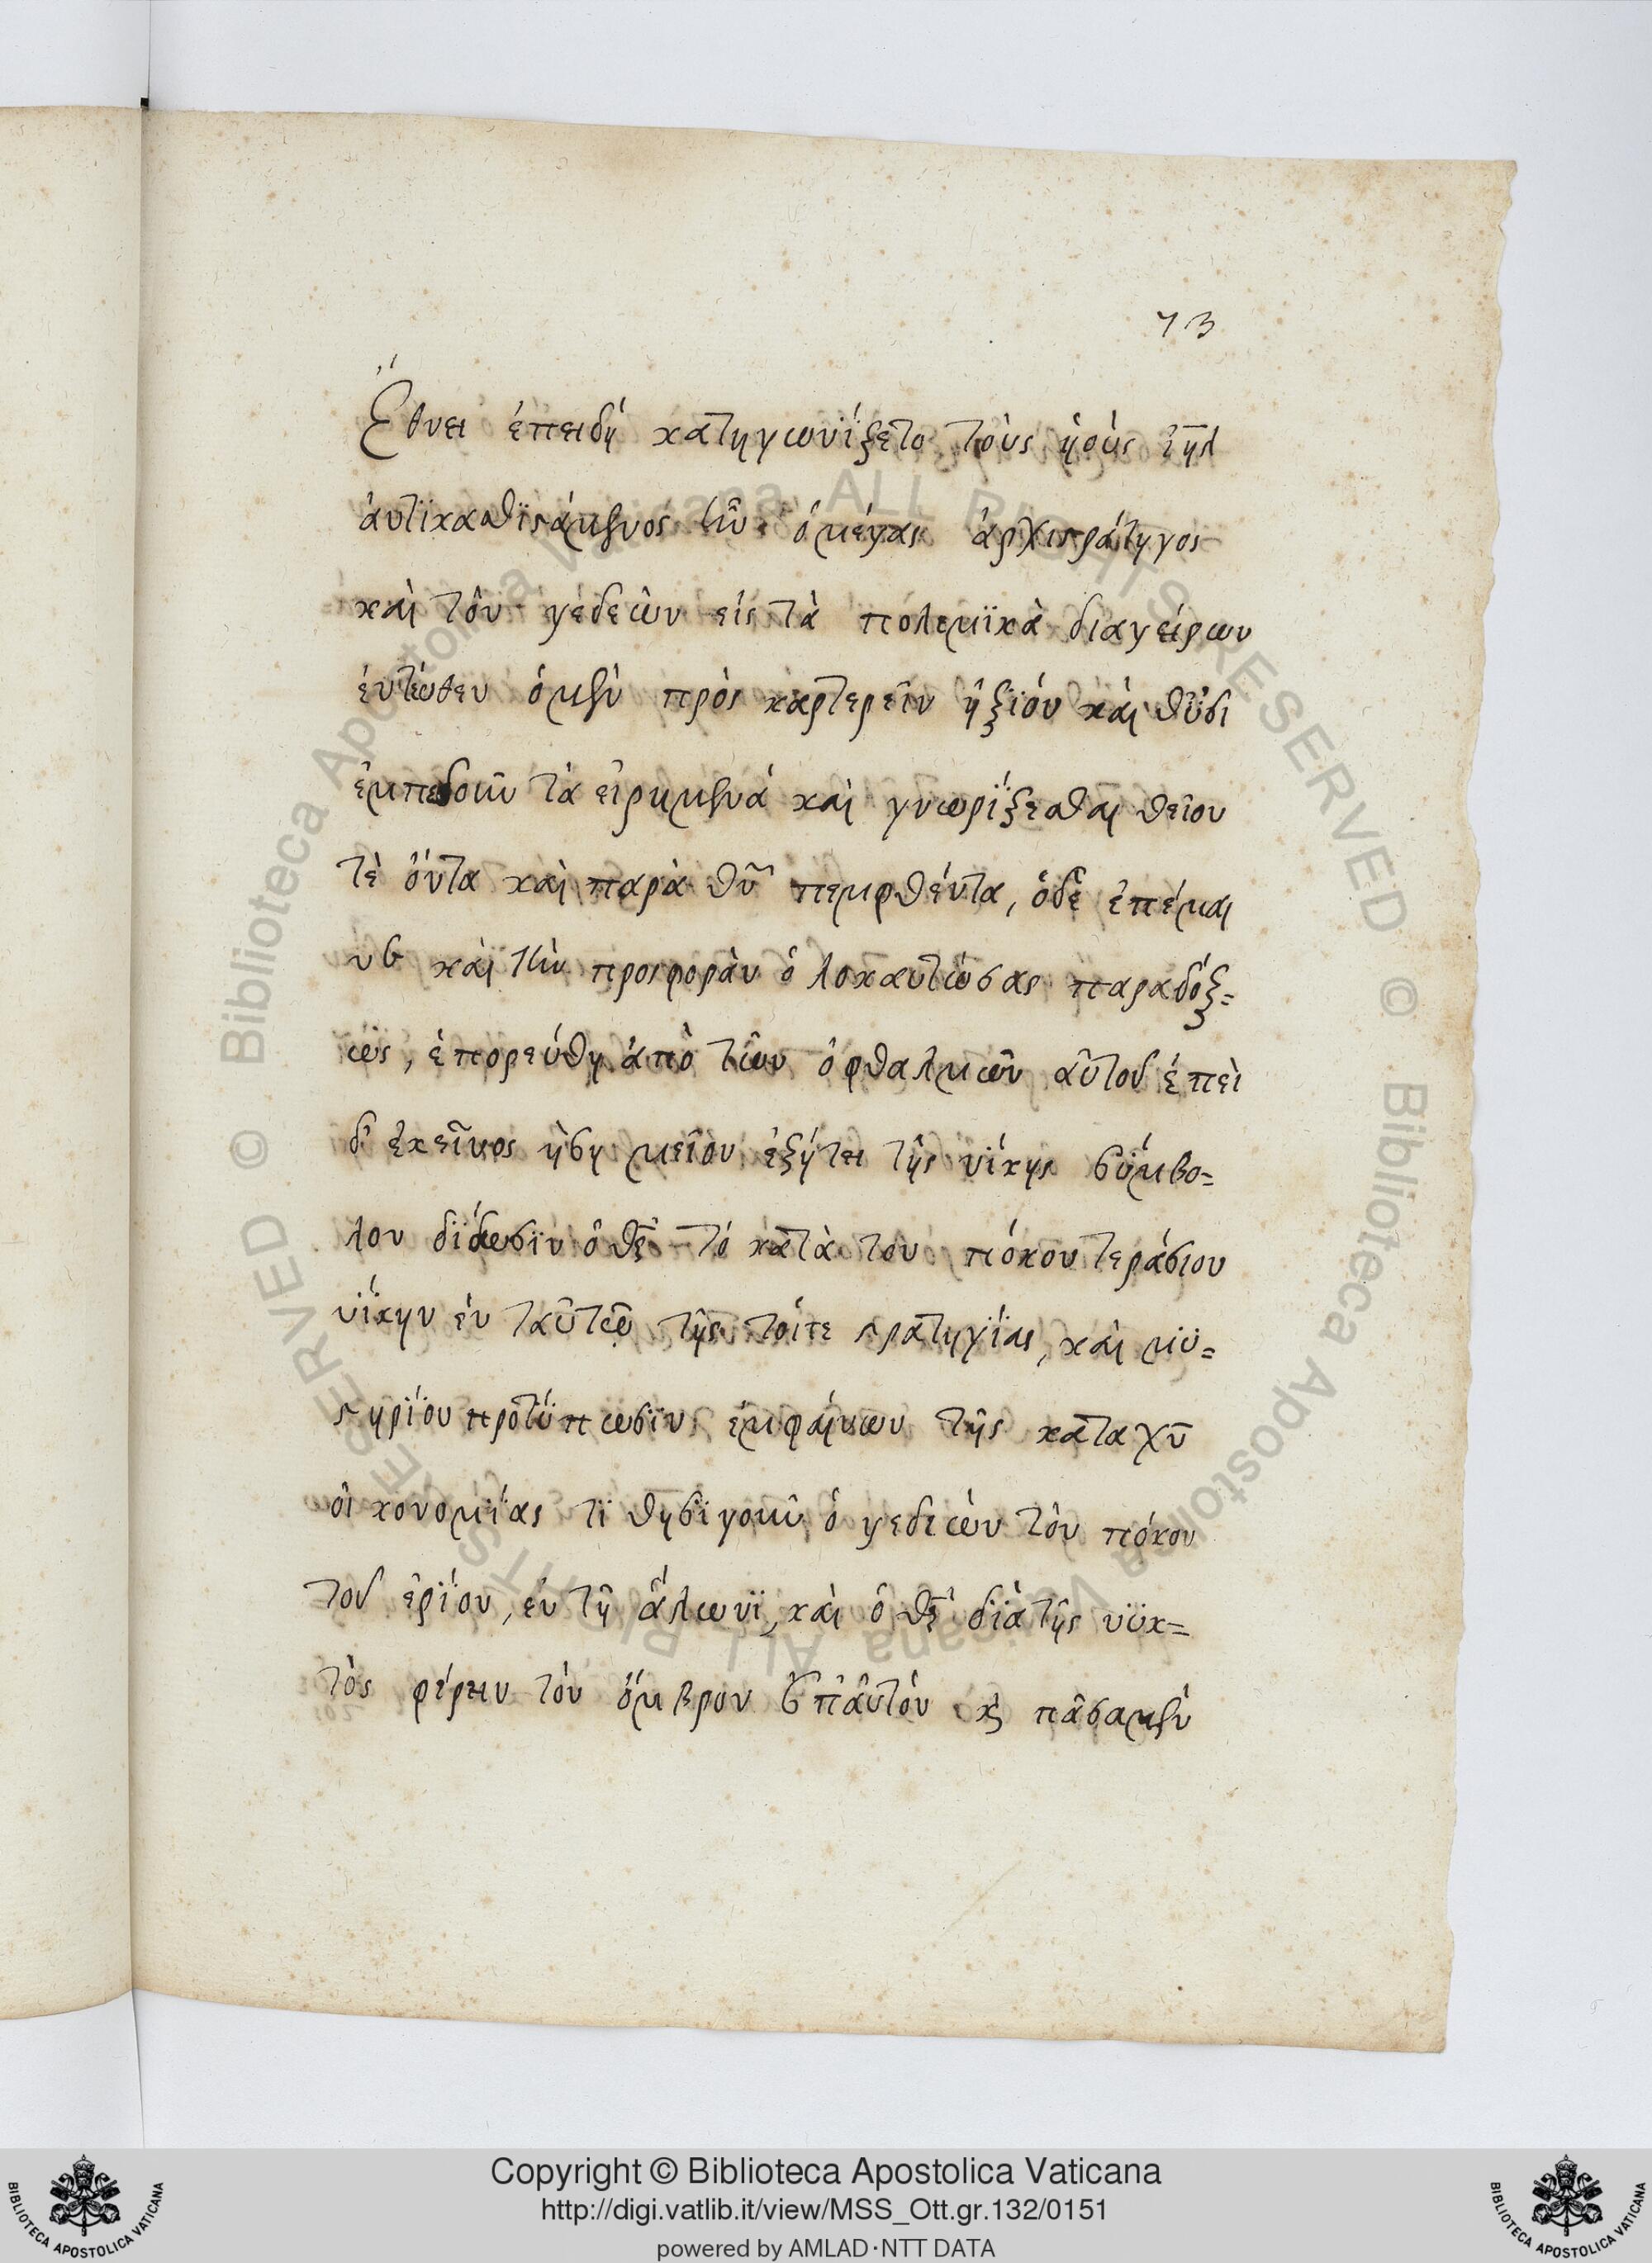 73
Ἔθνει ἐπειδὴ κατηγωνίζετο τοὺς ὑοὺς ἰηλ
ἀντϊκαθϊστάμενος ἦν ὁ μέγας ἀρχιστράτηγος
καὶ τὸν γεδεὼν εἰς τὰ πολεμϊκὰ διαγείρων
ἐντεῦθεν ὁ μὲν πρὸς καρτερεῖν ἠξϊου καὶ θϋσι
ἐμπεδοῦν τὰ εἰρημένα καὶ γνωρίζεσθαι θεῖον
τὲ ὄντα καὶ παρὰ θυ πεμφθέντα, ὁδὲ ἐπέμει
νε καὶ τὴν προσφορὰν ὁ λοκαυτώσας παραδόξ=
ως, ἐπορεύθη ἀπὸ τῶν ὀφθαλμῶν αὐτοῦ ἐπεὶ
δ' ἐκεῖνος ἠση μεῖον ἐζήτει τῆς νίκης σύμβο=
λον δίδωσϊν ὁ θς τὸ κατὰ τον πόκον τεράσιον
νίκην ἐν ταυτῶ τῆς τότε στρατηγίας, καὶ μϋ=
στηρίου προτύπωσϊν ἐμφαίνων τῆς κατα χυ
οἰ κονομίας τϊ θησϊ γοῦν ὁ γεδεὼν τὸν πόκον
τοῦ ἐρίου, ἐν τῆ ἅλωνϊ, καὶ ὁ θς δϊὰ τῆς νϋκ=
τὸς φέρειν τὸν ὄμβρον ἐπ' αὐτὸν κ πᾶσα μὲν
Copyright © Biblioteca Apostolica Vaticana
http://digi.vatlib.it/view/MSS_Ott.gr.132/0151
powered by AMLAD·NTT DATA
BIBLIOTECA APOSTOLICA VATICANA
BIBLIOTECA APOSTOLICA VATICANA
© Biblioteca Apostolica Vaticana ALL RIGHTS RESERVED
© Biblioteca Apostolica Vaticana ALL RIGHTS RESERVED